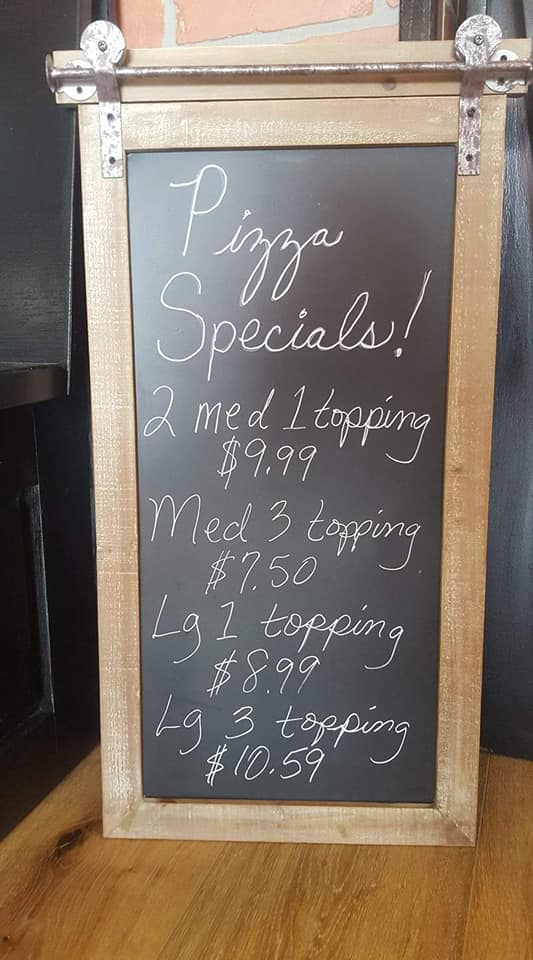 Pizza
Specials!
2 med 1 topping
$9.99
Med 3 topping
$7.50
Lg 1 topping
$8.99
Lg 3 topping
$10.59